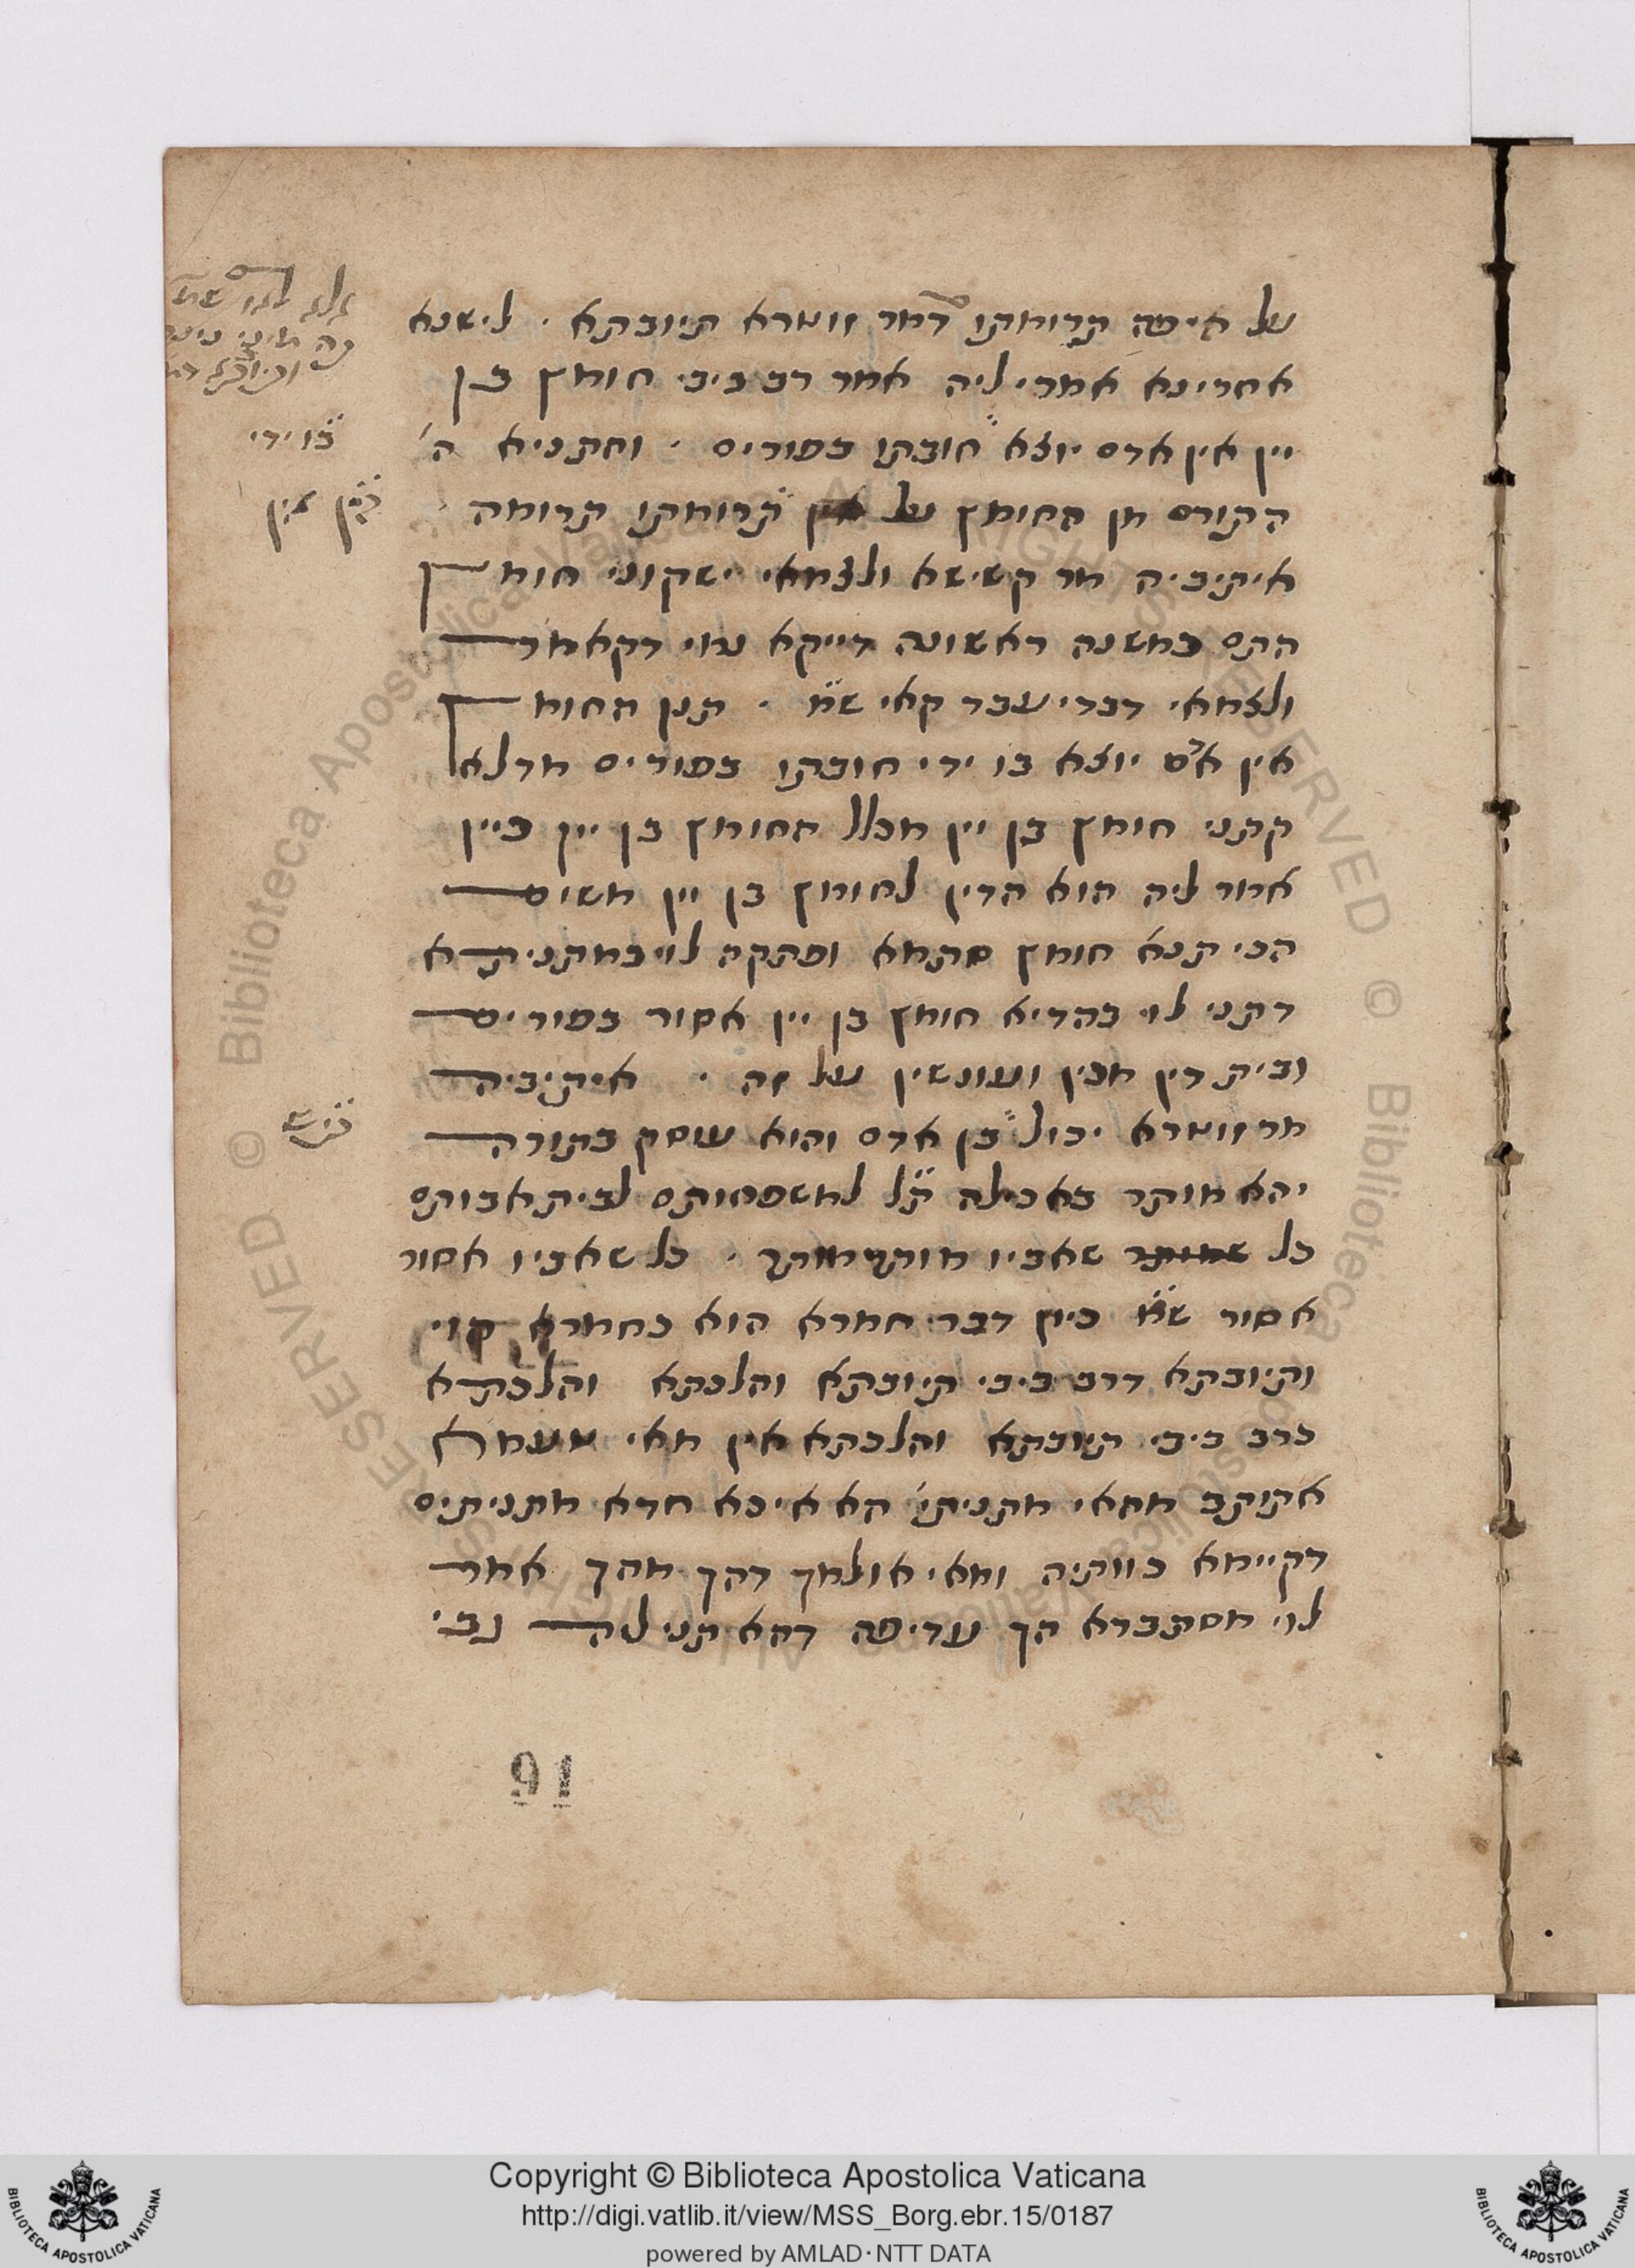 על איפה תרומתו דמר זוטרא תיובתא . לישנא
אחרינא אמרי ליה אמר רב ביבי חומץ בן
יין אין אדם יוצא חובתו בפורים . ומתניא ה'
התורם מן החומץ על תרומתו תרומה
איתיביה מר קשישא ולצמאי ישקוני חומץ
התם כמשנה ראשונה דייקא נמי דקאמר
ולצמאי דברי עבר קאי ש"מ . תנן החומץ
אין א"ם יוצא בו ידי חובתו בפורים מדלא
קתני חומץ בן יין מכלל החומץ בן יין כיין
אמר ליה הוא הדין לחומץ בן יין משום
הכי תנא חומץ סתמא ופתקה לוי במתניתא
דתני לוי בהדיא חומץ בן יין אסור בפורים
ובית דין מכין ועונשין על זה . איתיביה
מר זוטרא יכול בן אדם והוא עוסק בתורה
יהא מותר באכילה ת"ל למשפחותם לבית אבותם
כל שאביו מותר מותר . כל שאביו אסור
אסור ש"מ כיון דבר חמרא הוא כחמרא
ותיובתא דרב ביבי תיובתא והלכתא והלכתא
כרב ביבי תיובתא והלכתא אין מאי טעמא
אתותב מהאי מתניתי' הא איכא חדא מתניתים
דקיימא כוותיה ומאי אולמך דהך מהך אמר
לוי מסתברא הך עדיפה דהא תני ליה רבי
בו ידי
91
Copyright © Biblioteca Apostolica Vaticana
http://digi.vatlib.it/view/MSS_Borg.ebr.15/0187
powered by AMLAD·NTT DATA